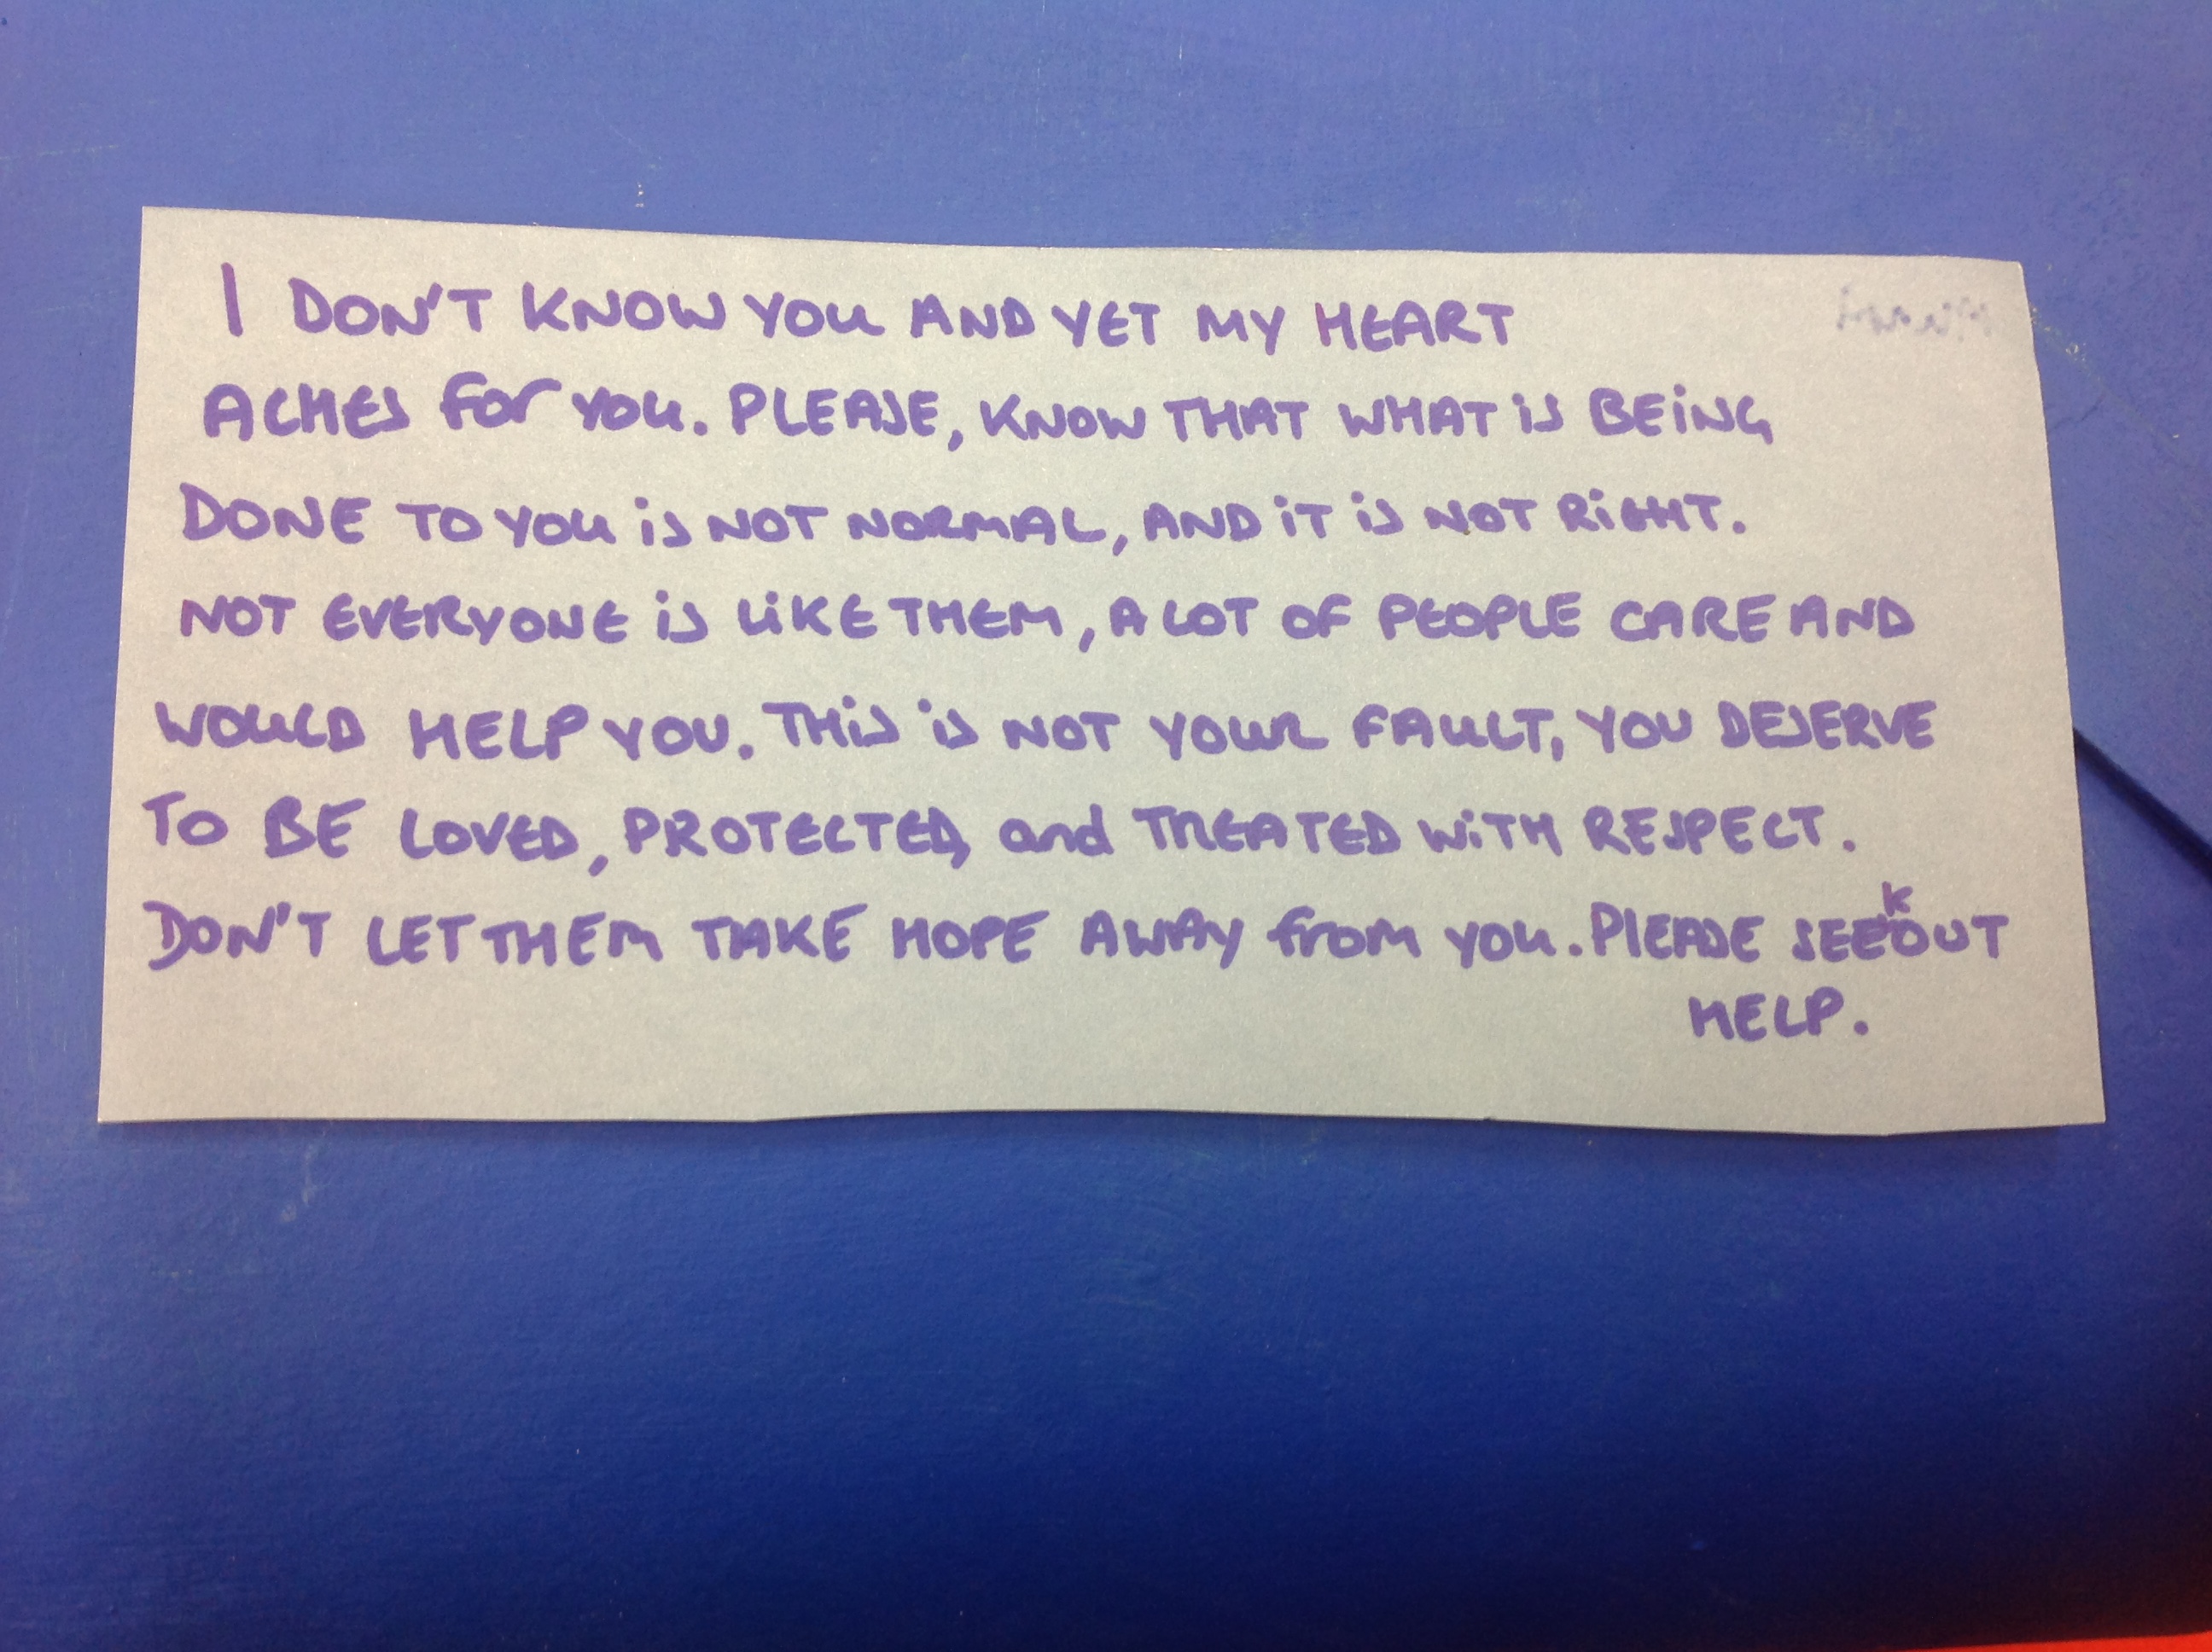 I DON'T KNOW YOU AND YET MY HEART
ACHES for YOU. PLEASE, KNOW THAT WHAT iS BEiNG
DONE TO YOU iS NOT NORMAL, AND iT iS NOT RiGHT.
NOT EVERYONE iS LiKE THEM, A LOT OF PEOPLE CARE AND
WOULD HELP YOU. THiS iS NOT YOUR FAULT, YOU DESERVE
TO BE LOVED, PROTECTED, and TREATED WiTH RESPECT.
DON'T LET THEM TAKE HOPE AWAY from YOU. PlEASE SEEK OUT
HELP.